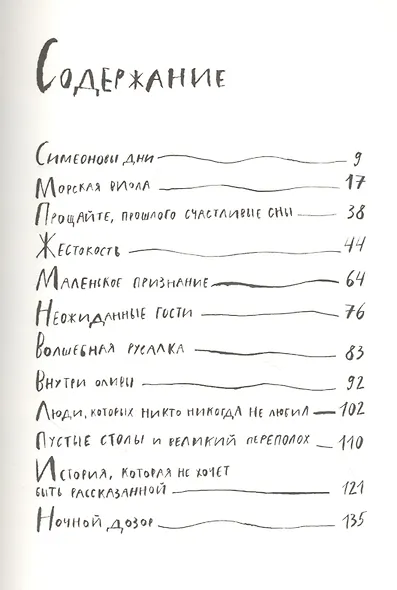 Содержание
Симеоновы дни 9
Морская виола 17
Прощайте, прошлого счастливые сны 38
Жестокость 44
Маленькое признание 64
Неожиданные гости 76
Волшебная русалка 83
Внутри оливы 92
Люди, которых никто никогда не любил 102
Пустые столы и великий переполох 110
История, которая не хочет
быть рассказанной 121
Ночной дозор 135